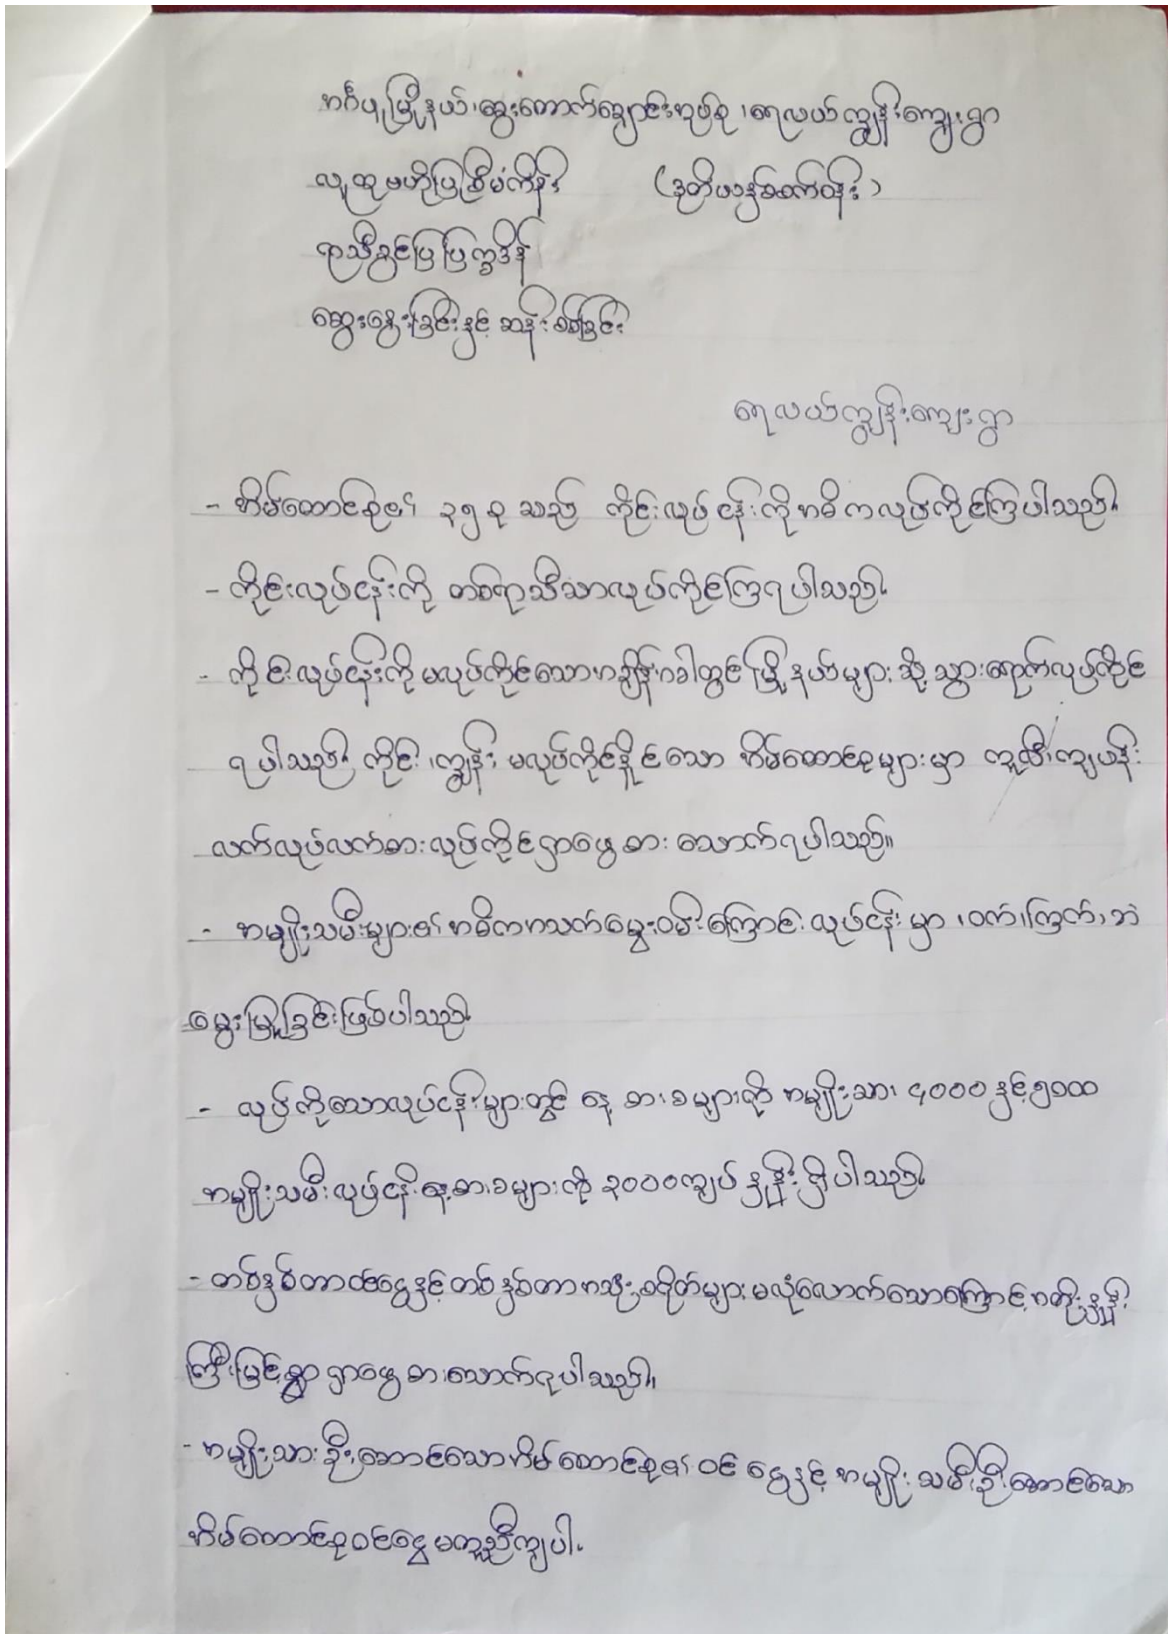 အင်္ဂပူမြို့နယ်၊ဆွေးတောက်ချောင်းအုပ်စု၊ရေလယ်ကျွန်းကျေးရွာ
လူထုဗဟိုပြုစီမံကိန်း (ဒုတိယနှစ်စက်ဝန်း)
ရာသီခွင်ပြပြက္ခဒိန်
ဆွေးနွေးခြင်းနှင့် ဆန်းစစ်ခြင်း
ရေလယ်ကျွန်းကျေးရွာ
- အိမ်ထောင်စု၏ ၃၅ စု သည် ကိုင်းလုပ်ငန်းကိုအဓိကလုပ်ကိုင်ကြပါသည်။
- ကိုင်းလုပ်ငန်းကို တစ်ရာသီသာလုပ်ကိုင်ကြရပါသည်။
- ကိုင်းလုပ်ငန်းကိုမလုပ်ကိုင်သောအချိန်အခါတွင်မြို့နယ်များသို့သွားရောက်လုပ်ကိုင်
ရပါသည်။ ကိုင်း၊ကျွန်း မလုပ်ကိုင်နိုင်သော အိမ်ထောင်စုများမှာ ကူလီ၊ကျပန်း
လက်လုပ်လက်စားလုပ်ကိုင်ရှာဖွေစားသောက်ရပါသည်။
- အမျိုးသမီးများ၏အဓိကအသက်မွေးဝမ်းကြောင်းလုပ်ငန်းမှာ ၊ဝက်၊ကြက်၊ဘဲ
မွေးမြူခြင်းဖြစ်ပါသည်။
- လုပ်ကိုသောလုပ်ငန်းများတွင် နေ့စားခများကို အမျိုးသား ၄၀၀၀နှင့်၅၁၀ထ
အမျိုးသမီးလုပ်ငန်းနေ့စားခများကို ၃၀၀၀ကျပ်နှုန်းရှိပါသည်။
- တစ်နှစ်တာဝင်ငွေနှင့်တစ်နှစ်တာအသုံးစရိတ်များမလုံလောက်သောကြောင့်အတိုးနှုန်း
ကြီးမြင့်စွာရှာဖွေစားသောက်ရပါသည်။
- အမျိုးသားဦးဆောင်သောအိမ်ထောင်စု၏ဝင်ငွေနှင့်အမျိုးသမီးဦးဆောင်သော
အိမ်ထောင်စုဝင်ငွေမကူညီကျပါ။